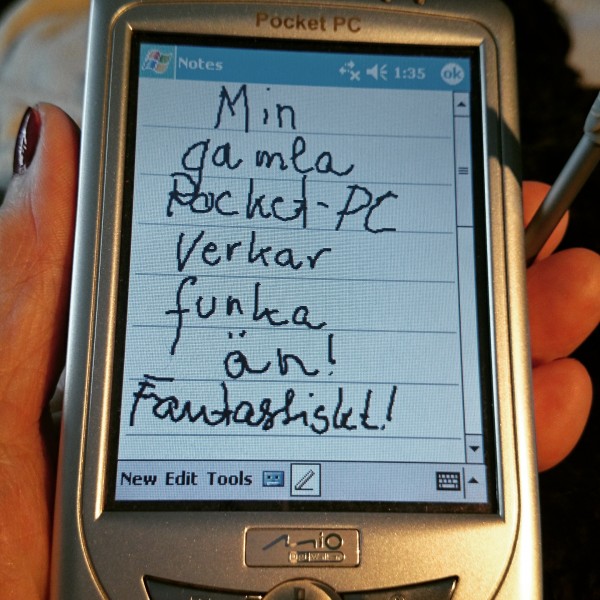 Pocket PC
Notes 1:35 ok
Min
gamla
Pocket-PC
verkar
funka
än!
Fantastiskt!
New Edit Tools
Mio